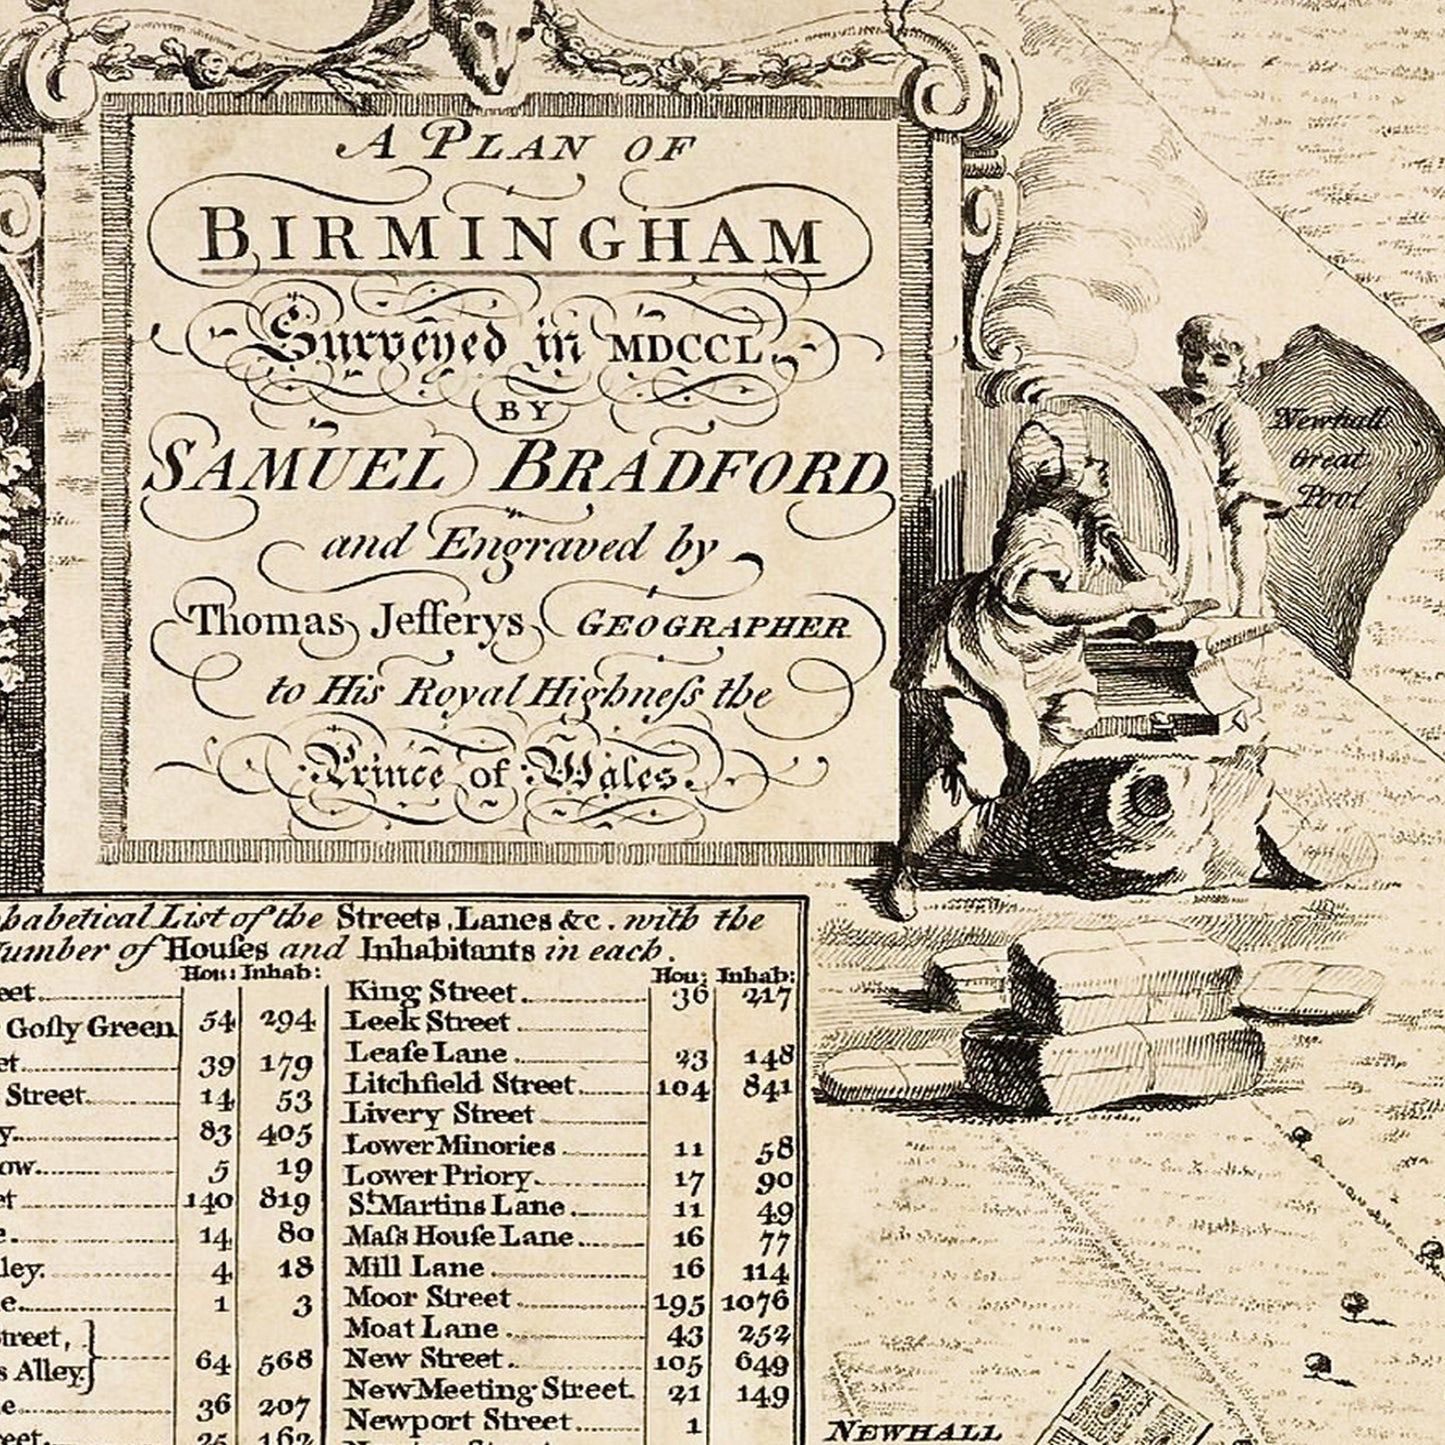 A PLAN OF
BIRMINGHAM
Surveyed in MDCCL.
BY
SAMUEL BRADFORD
and Engraved by
Thomas Jefferys, GEOGRAPHER
to His Royal Highneſs the
Prince of Wales.
Newhall
Great
Pool
List of the Streets, Lanes &c. with the
of Houſes and Inhabitants in each.
Hou: Inhab:
Goſty Green 54 294
39 179
Street 14 53
83 405
5 19
140 819
14 80
4 18
1 3
Street,
Alley 64 568
36 207
25 162
Hou: Inhab:
King Street 36 217
Leek Street
Leaſe Lane 23 148
Litchfield Street 104 841
Livery Street
Lower Minories 11 58
Lower Priory 17 90
St. Martins Lane 11 49
Maſs Houſe Lane 16 77
Mill Lane 16 114
Moor Street 195 1076
Moat Lane 43 252
New Street 105 649
New Meeting Street 21 149
Newport Street 1
NEWHALL